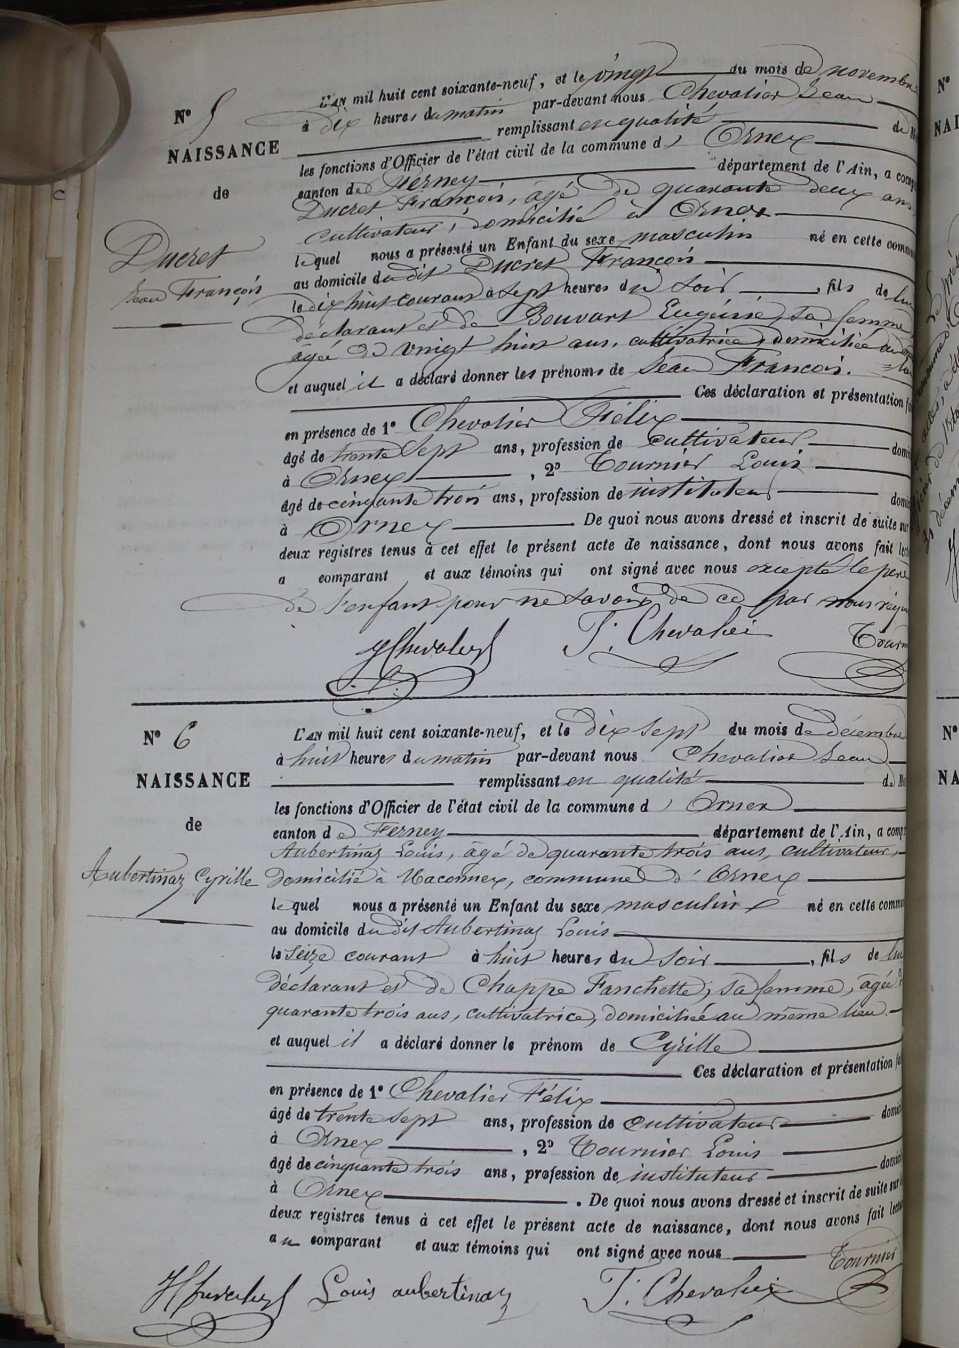 N° 5
NAISSANCE
de
Ducret
Jean François
L'AN mil huit cent soixante-neuf, et le vingt du mois de novembre
à dix heures du matin par-devant nous Chevalier Jean
remplissant en qualité de
les fonctions d'Officier de l'état civil de la commune d' Ornex
canton de Ferney département de l'Ain, a comp
Ducret François, âgé de quarante deux ans,
cultivateur, domicilié à Ornex
lequel nous a présenté un Enfant du sexe masculin né en cette commune
au domicile dudit Ducret François
le dix huit courant à sept heures du soir, fils de lui
déclarant et de Bouvart Eugénie, sa femme
âgée de vingt huit ans, cultivatrice, domiciliée au
et auquel il a déclaré donner les prénoms de Jean François.
Ces déclaration et présentation
en présence de 1° Chevalier Félix
âgé de trente sept ans, profession de cultivateur
à Ornex, 2° Tournier Louis
âgé de cinquante trois ans, profession de instituteur
à Ornex De quoi nous avons dressé et inscrit de suite sur
deux registres tenus à cet effet le présent acte de naissance, dont nous avons fait lect
a comparant et aux témoins qui ont signé avec nous excepté le père
de l'enfant pour ne savoir de ce par nous requ
JChevalier F. Chevalier Tourn
N° 6
NAISSANCE
de
Aubertinaz Cyrille
L'AN mil huit cent soixante-neuf, et le dix sept du mois de décembre
à huit heures du matin par-devant nous Chevalier Jean
remplissant en qualité de
les fonctions d'Officier de l'état civil de la commune d' Ornex
canton de Ferney département de l'Ain, a comp
Aubertinaz Louis, âgé de quarante trois ans, cultivateur,
domicilié à Maconnex, commune d'Ornex
lequel nous a présenté un Enfant du sexe masculin né en cette commu
au domicile dudit Aubertinaz Louis
le seize courant à huit heures du soir, fils de lui
déclarant et de Chappe Fanchette, sa femme, âgée
quarante trois ans, cultivatrice, domiciliée au même lieu.
et auquel il a déclaré donner le prénom de Cyrille
Ces déclaration et présentation
en présence de 1° Chevalier Félix
âgé de trente sept ans, profession de cultivateur
à Ornex, 2° Tournier Louis
âgé de cinquante trois ans, profession de instituteur
à Ornex. De quoi nous avons dressé et inscrit de suite sur
deux registres tenus à cet effet le présent acte de naissance, dont nous avons fait lect
au comparant et aux témoins qui ont signé avec nous
Tournier
JChevalier Louis aubertinaz F. Chevalier